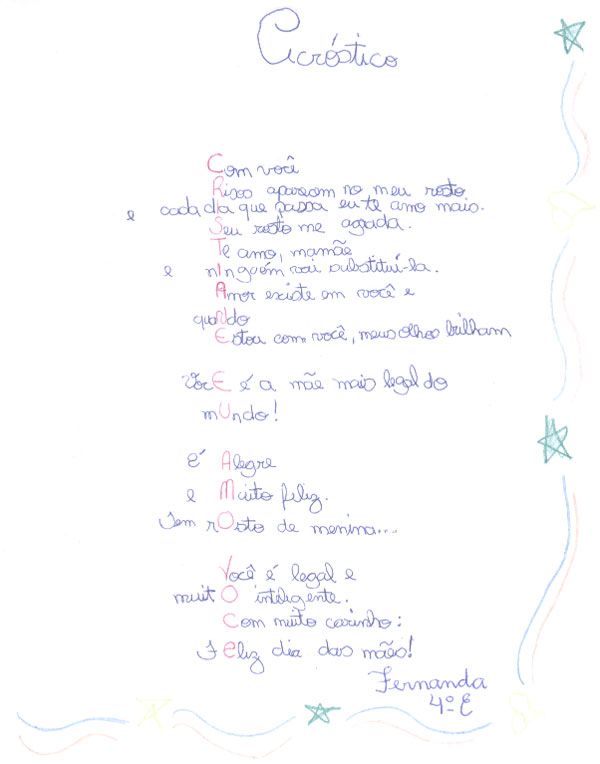 Acróstico
Com você
Risos aparecem no meu rosto
e cada dia que passa eu te amo mais.
Seu rosto me agrada.
Te amo, mamãe
e ninguém vai substituí-la.
Amor existe em você e
quaNdo
Estou com você, meus olhos brilham
VocÊ é a mãe mais legal do
mUndo!
É Alegre
e Muito feliz.
Tem rOsto de menina...
Você é legal e
muitO inteligente.
Com muito carinho:
Feliz dia das mães!
Fernanda
4º E